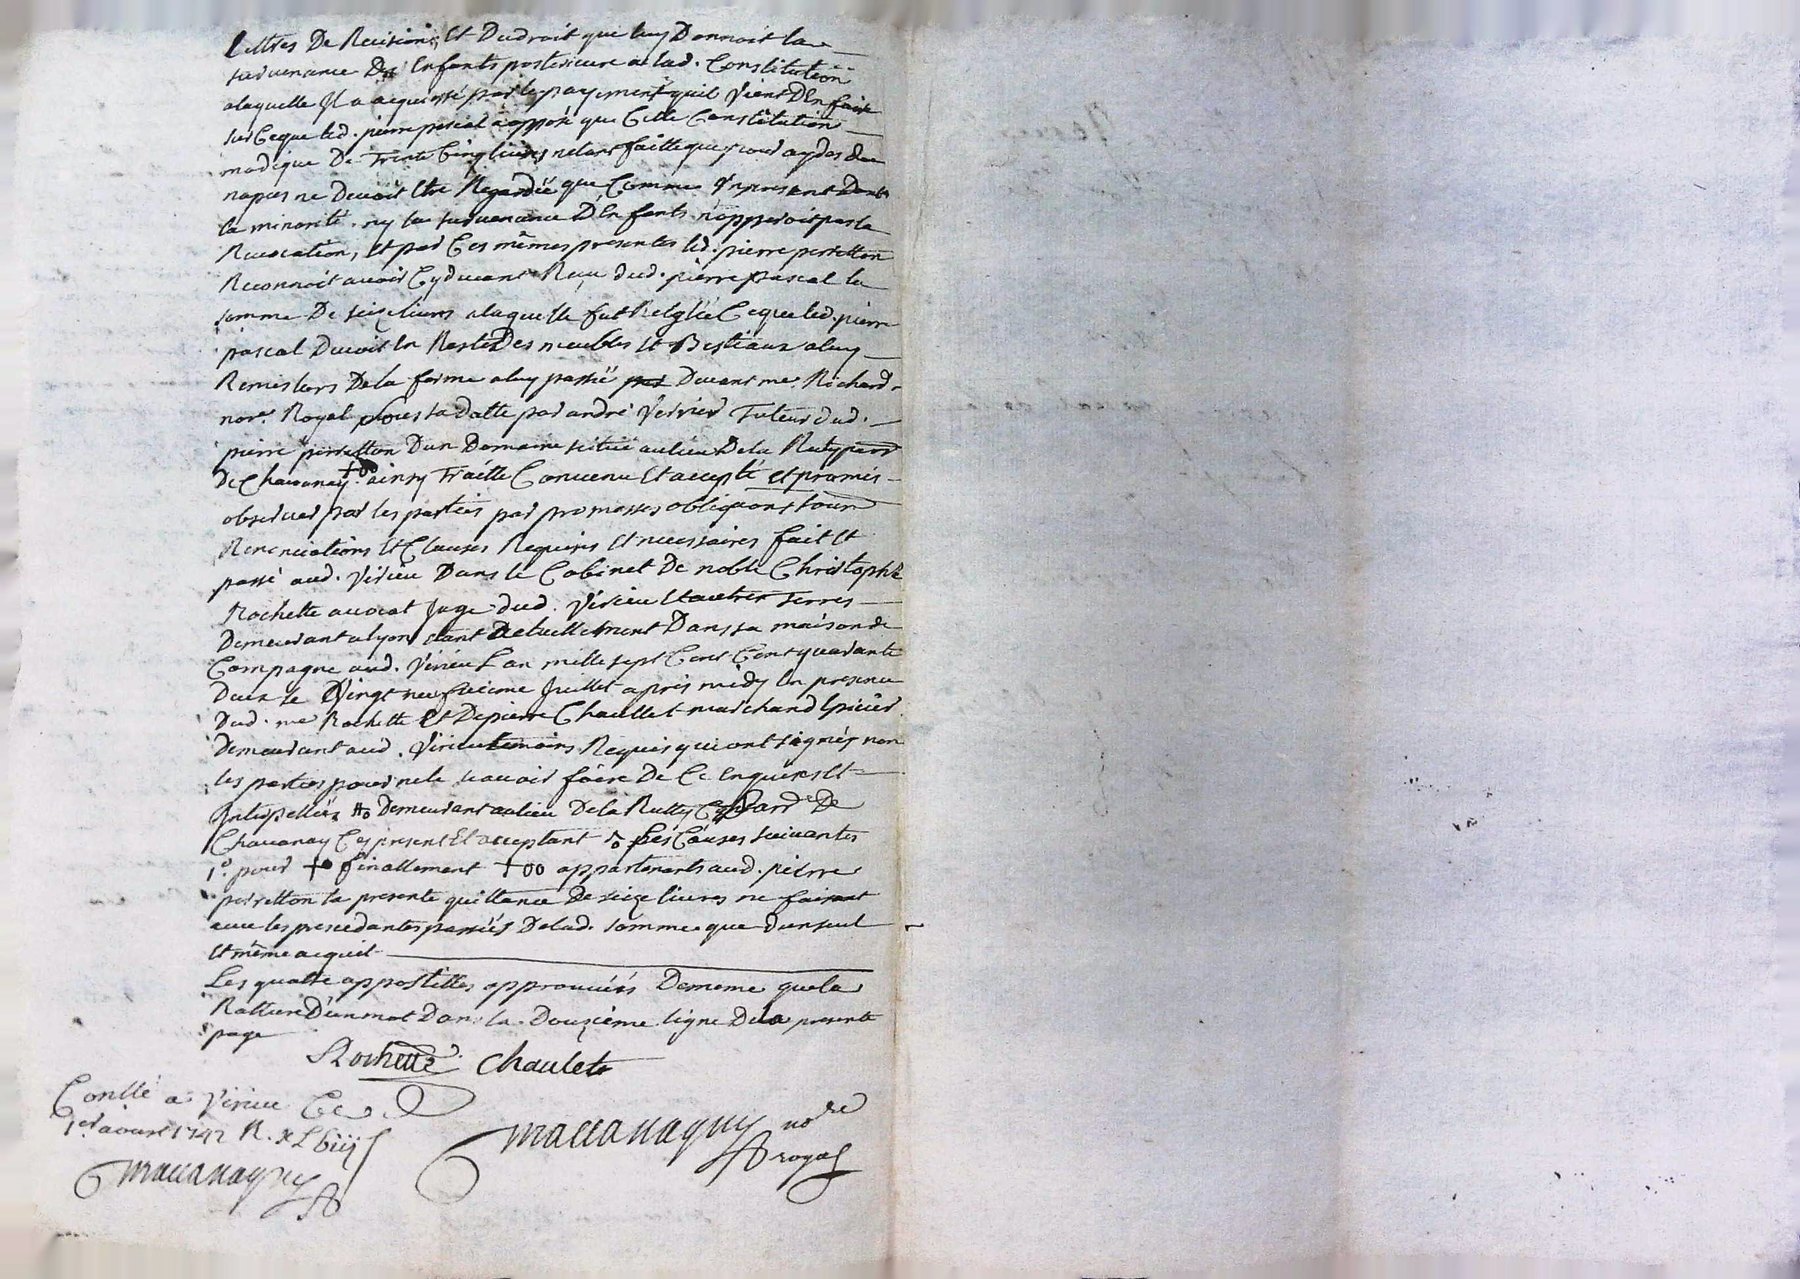 Lettres De Recisions, Et Dudroit que luy Donnoit la
survenance Des Enfants posterieure a lad. Constitution
alaquelle Il a acquiessé par le payement quil Vient DEn faire
sur Ceque led. pierre pascal a opposé que Cette Constitution
modique De Trente Cinq livres nétant faitte que pour aydes de
nopces ne Devoit Etre Regardée que Comme Un present Dont
la minorité ny la survenance D'Enfants n'opperoit pas la
Revocation, Et par Ces mêmes presentes led. pierre perretton
Reconnoit avoir Cy devant Reçu dud. pierre pascal la
somme De seize livres alaquelle fut Reglée Ceque led. pierre
pascal Devoit En Reste Des meubles Et Bestiaux a luy
Remis lors De la ferme a luy passée par Devant me. Richard
nore. Royal sous sa datte par andré Verrier Tuteur dud.
pierre perretton D'un Domaine scitué au lieu De la
De Chavanay +00 ainsy Traitté Convenu Et accepté et promis
observer par les parties par promesses obligations soum
Renonciations Et Clauses Requises Et necessaires fait Et
passé aud. Virieu Dans le Cabinet De noble Christophle
Rochette avocat Juge dud. Virieu Et autres Terres
Demeurant a lyon étant actuellement Dans sa maison de
Campagne aud. Virieu L'an mille sept Cent Cent quarante
Deux le Vingt neufvieme Juillet après midy En presence
Dud. me Rochette Et De pierre Chaullet marchand Epicier
Demeurant aud. Virieu temoins Requis qui ont signés non
les parties pour ne le scavoir faire De Ce Enquises Et
Interpellées #o Demeurant au lieu De la
Chavanay Cy present Et acceptant Les Causes suivantes
1°. pour +o finallement +00 appartenants aud. pierre
perretton la presente quittance De seize livres ne faisant
avec les precedantes passées Delad. somme que d'un seul
Et même acquit
Les quatre appostilles approuvées De meme que la
Rature D'un mot Dans la Douzième ligne De la presente
page
Rochette Chaulet
Conllé a Virieu Ce
1er. aoust 1742 R.
maccanaguy nore
royal
maccanaguy